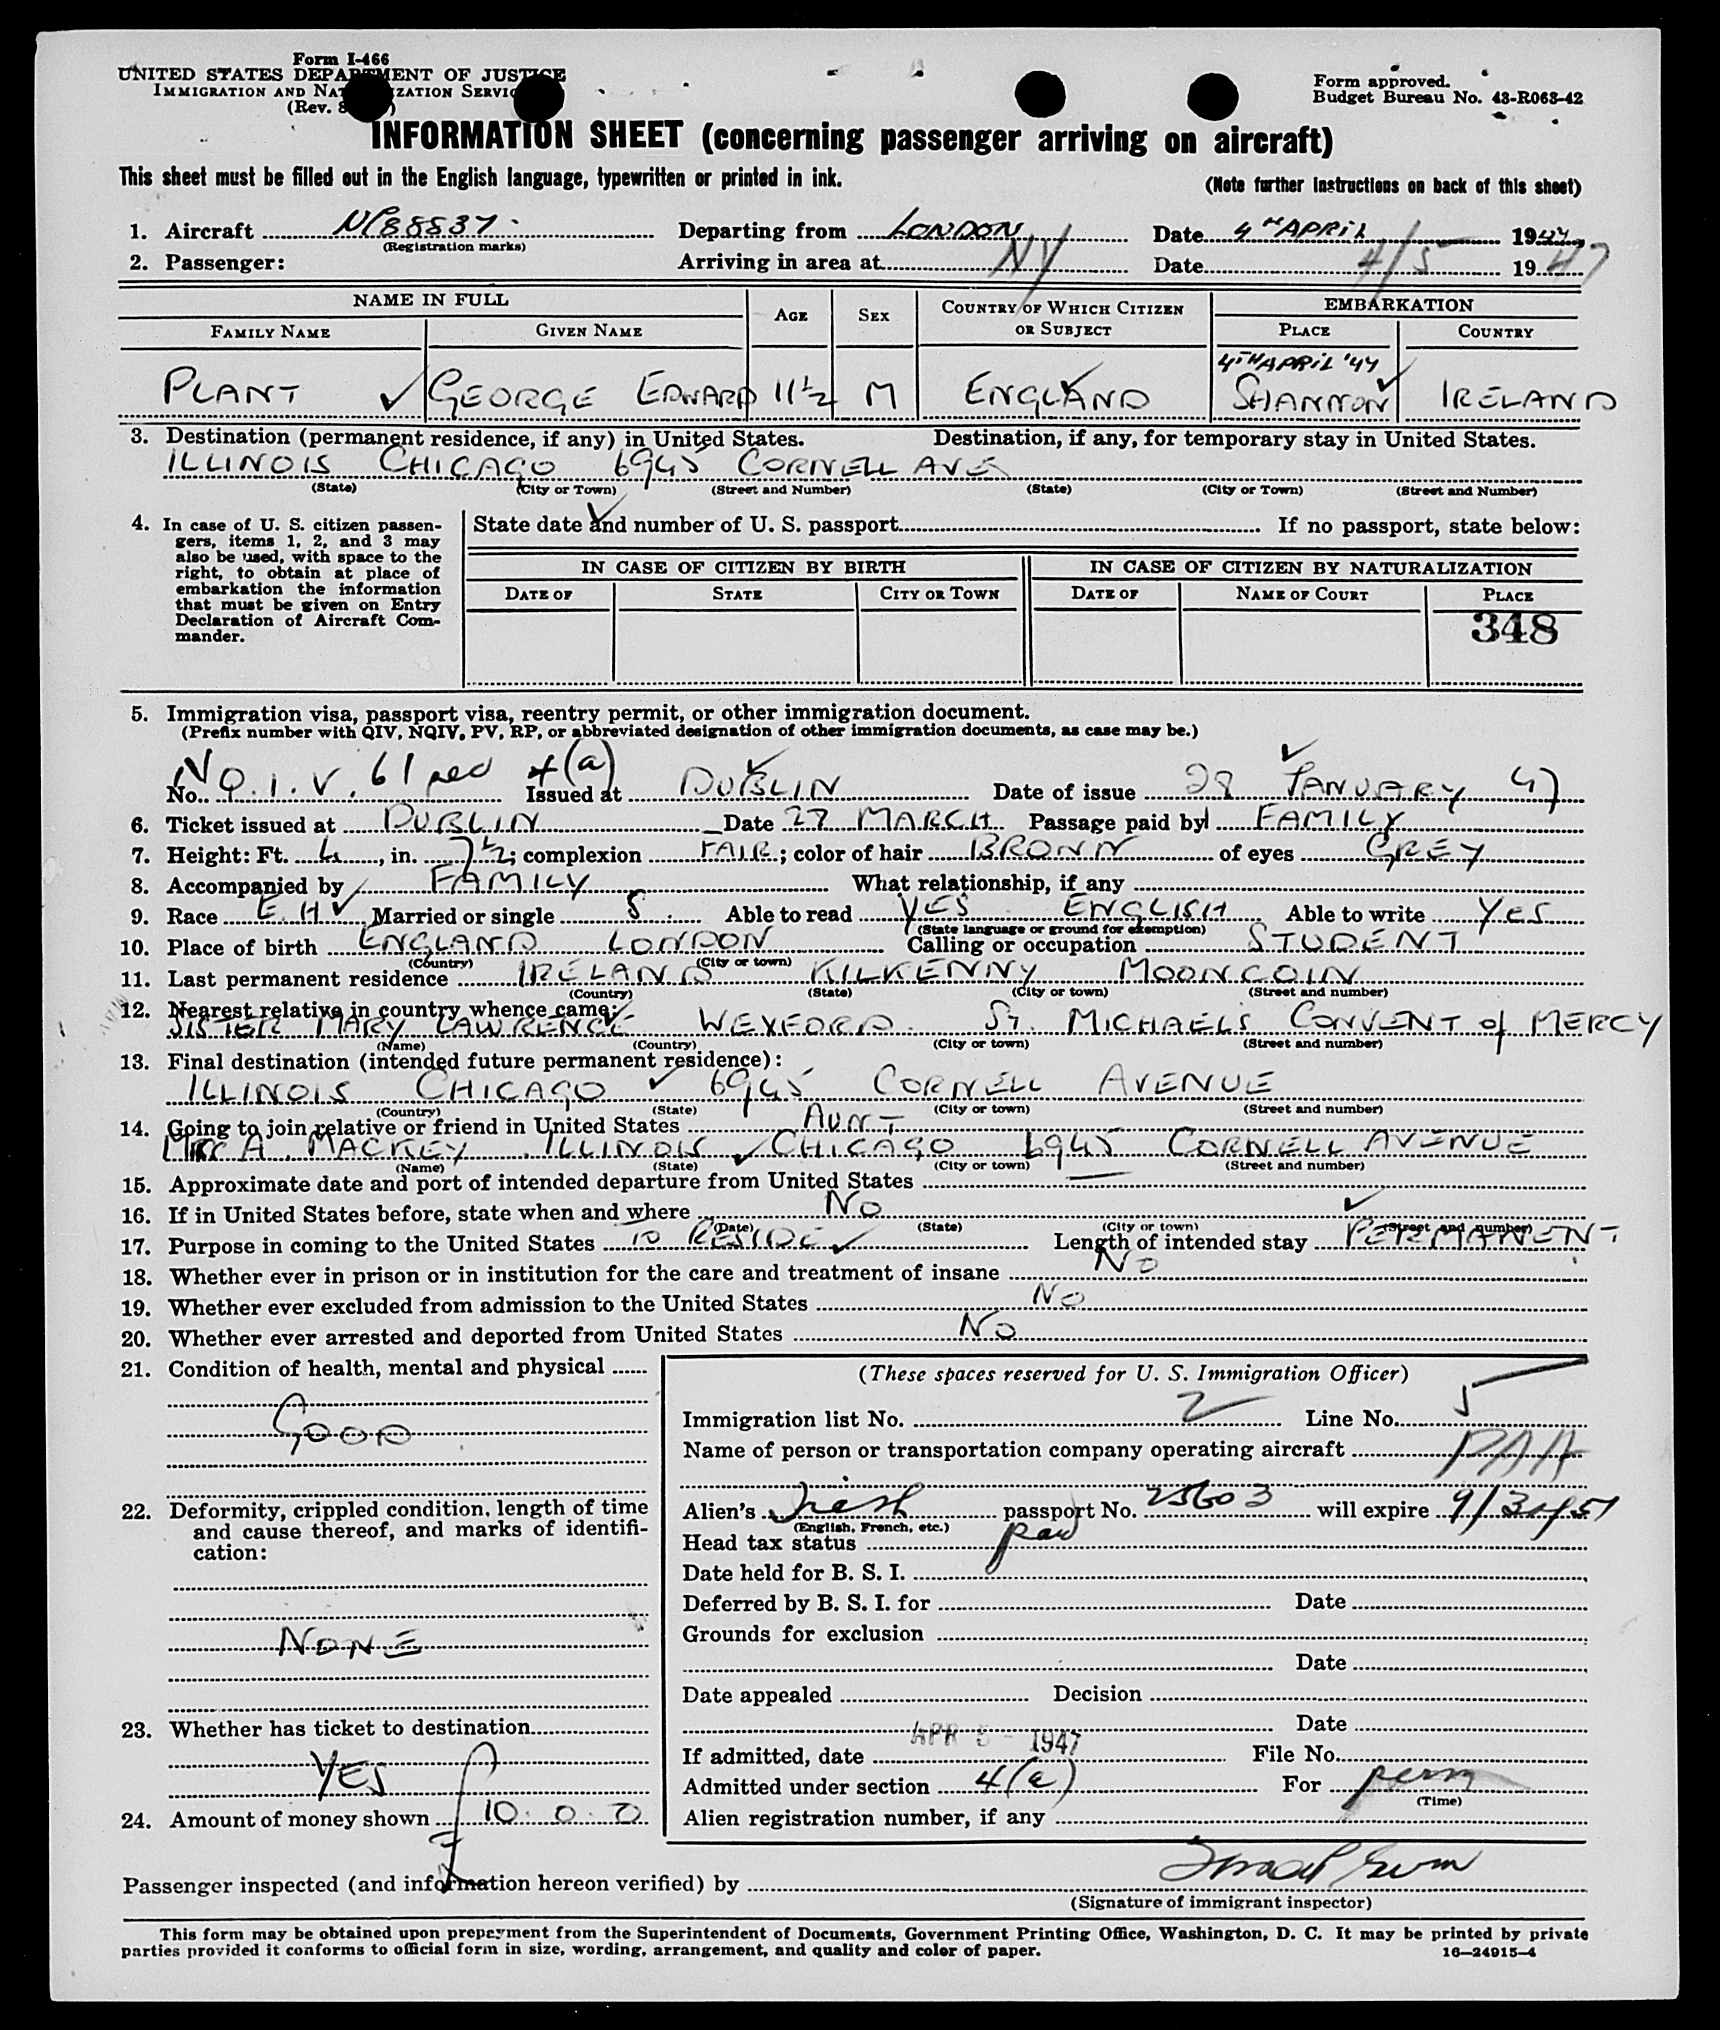 Form I-466
UNITED STATES DEPARTMENT OF JUSTICE
IMMIGRATION AND NATURALIZATION SERVICE
(Rev.
Form approved.
Budget Bureau No. 43-R063-42
INFORMATION SHEET (concerning passenger arriving on aircraft)
This sheet must be filled out in the English language, typewritten or printed in ink.
(Note further instructions on back of this sheet)
1. Aircraft 88837 Departing from LONDON Date 4TH APRIL 19
(Registration marks)
2. Passenger: Arriving in area at NY Date 4/5 1947
NAME IN FULL AGE SEX COUNTRY OF WHICH CITIZEN OR SUBJECT EMBARKATION
FAMILY NAME GIVEN NAME PLACE COUNTRY
4TH APRIL '47
PLANT GEORGE EDWARD 11½ M ENGLAND SHANNON IRELAND
3. Destination (permanent residence, if any) in United States. Destination, if any, for temporary stay in United States.
ILLINOIS CHICAGO 6945 CORNELL AVE
(State) (City or Town) (Street and Number) (State) (City or Town) (Street and Number)
4. In case of U. S. citizen passen-
gers, items 1, 2, and 3 may
also be used, with space to the
right, to obtain at place of
embarkation the information
that must be given on Entry
Declaration of Aircraft Com-
mander.
State date and number of U. S. passport If no passport, state below:
IN CASE OF CITIZEN BY BIRTH IN CASE OF CITIZEN BY NATURALIZATION
DATE OF STATE CITY OR TOWN DATE OF NAME OF COURT PLACE
348
5. Immigration visa, passport visa, reentry permit, or other immigration document.
(Prefix number with QIV, NQIV, PV, RP, or abbreviated designation of other immigration documents, as case may be.)
No. N Q.I.V. 61 4(a) Issued at DUBLIN Date of issue 28 JANUARY 47
6. Ticket issued at DUBLIN Date 27 MARCH Passage paid by FAMILY
7. Height: Ft. 4, in. 7½; complexion FAIR; color of hair BROWN of eyes GREY
8. Accompanied by FAMILY What relationship, if any
9. Race E.H Married or single S. Able to read YES ENGLISH Able to write YES
(State language or ground for exemption)
10. Place of birth ENGLAND LONDON Calling or occupation STUDENT
(Country) (City or town)
11. Last permanent residence IRELAND KILKENNY MOONCOIN
(Country) (State) (City or town) (Street and number)
12. Nearest relative in country whence came:
SISTER MARY LAWRENCE WEXFORD. ST. MICHAELS CONVENT of MERCY
(Name) (Country) (City or town) (Street and number)
13. Final destination (intended future permanent residence):
ILLINOIS CHICAGO 6945 CORNELL AVENUE
(Country) (State) (City or town) (Street and number)
14. Going to join relative or friend in United States AUNT
A. MACKEY ILLINOIS CHICAGO 6945 CORNELL AVENUE
(Name) (State) (City or town) (Street and number)
15. Approximate date and port of intended departure from United States —
16. If in United States before, state when and where NO
(Date) (State) (City or town) (Street and number)
17. Purpose in coming to the United States TO RESIDE Length of intended stay PERMANENT
18. Whether ever in prison or in institution for the care and treatment of insane NO
19. Whether ever excluded from admission to the United States NO
20. Whether ever arrested and deported from United States NO
21. Condition of health, mental and physical
GOOD
22. Deformity, crippled condition, length of time
and cause thereof, and marks of identifi-
cation:
NONE
23. Whether has ticket to destination
YES
24. Amount of money shown £10.0.0
(These spaces reserved for U. S. Immigration Officer)
Immigration list No. 2 Line No. 5
Name of person or transportation company operating aircraft PAA
Alien's Irish passport No. 25603 will expire
(English, French, etc.)
Head tax status
Date held for B. S. I.
Deferred by B. S. I. for Date
Grounds for exclusion
Date
Date appealed Decision
Date
If admitted, date APR 5 - 1947 File No.
Admitted under section 4(a) For perm
(Time)
Alien registration number, if any
Passenger inspected (and information hereon verified) by
(Signature of immigrant inspector)
This form may be obtained upon prepayment from the Superintendent of Documents, Government Printing Office, Washington, D. C. It may be printed by private
parties provided it conforms to official form in size, wording, arrangement, and quality and color of paper.
16—24915-4